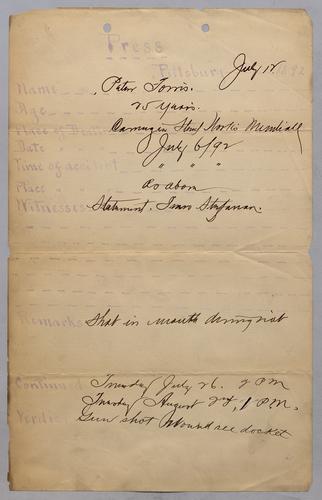 Press
July 12
Pittsburg 1892
Name Peter Torris
Age 25 Years.
Place of Death Carnegie Steel Works Munhall
Date " July 6/92
Time of accident " " "
Place " As above
Witnesses Statement.
Remarks Shot in mouth during riot
Continued Tuesday July 26. 2 PM
Tuesday August 2d, 1 P.M.
Verdict Gun shot Wound see docket